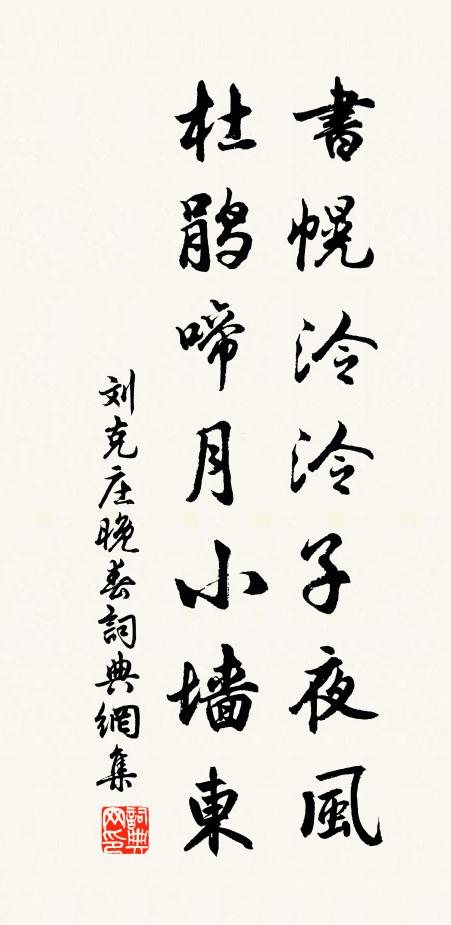 書幌泠泠子夜風
杜鹃啼月小墙東
刘克庄晚春詞典網集
詞典网印